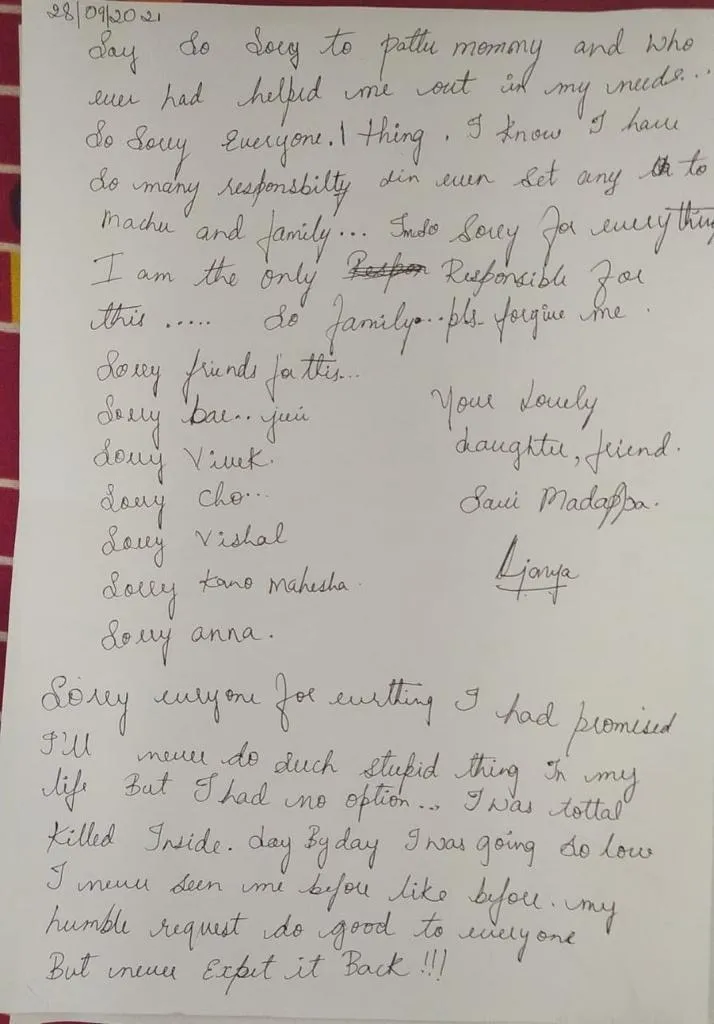 28/09/2021
Say so sory to pattu mommy and who
ever had helped me out in my needs...
So Sorry Everyone. 1 thing. I know I have
so many responsbilty din even set any to
Machu and family... Imso Sorry for everything
I am the only Responsible for
this ..... So family...pls forgive me.
Sorry friends for this...
Sorry bae..
Sorry Vivek.
Sorry Cho...
Sorry Vishal
Sorry Kano Mahesha.
Sorry anna.
Your Lovely
daughter, friend.
Savi Madappa.
Sorry everyone for everthing I had promised
I'll never do such stupid thing In my
life But I had no option... I was tottal
Killed Inside. day By day I was going so low
I never seen me before like before. my
humble request do good to everyone
But never Expet it Back !!!